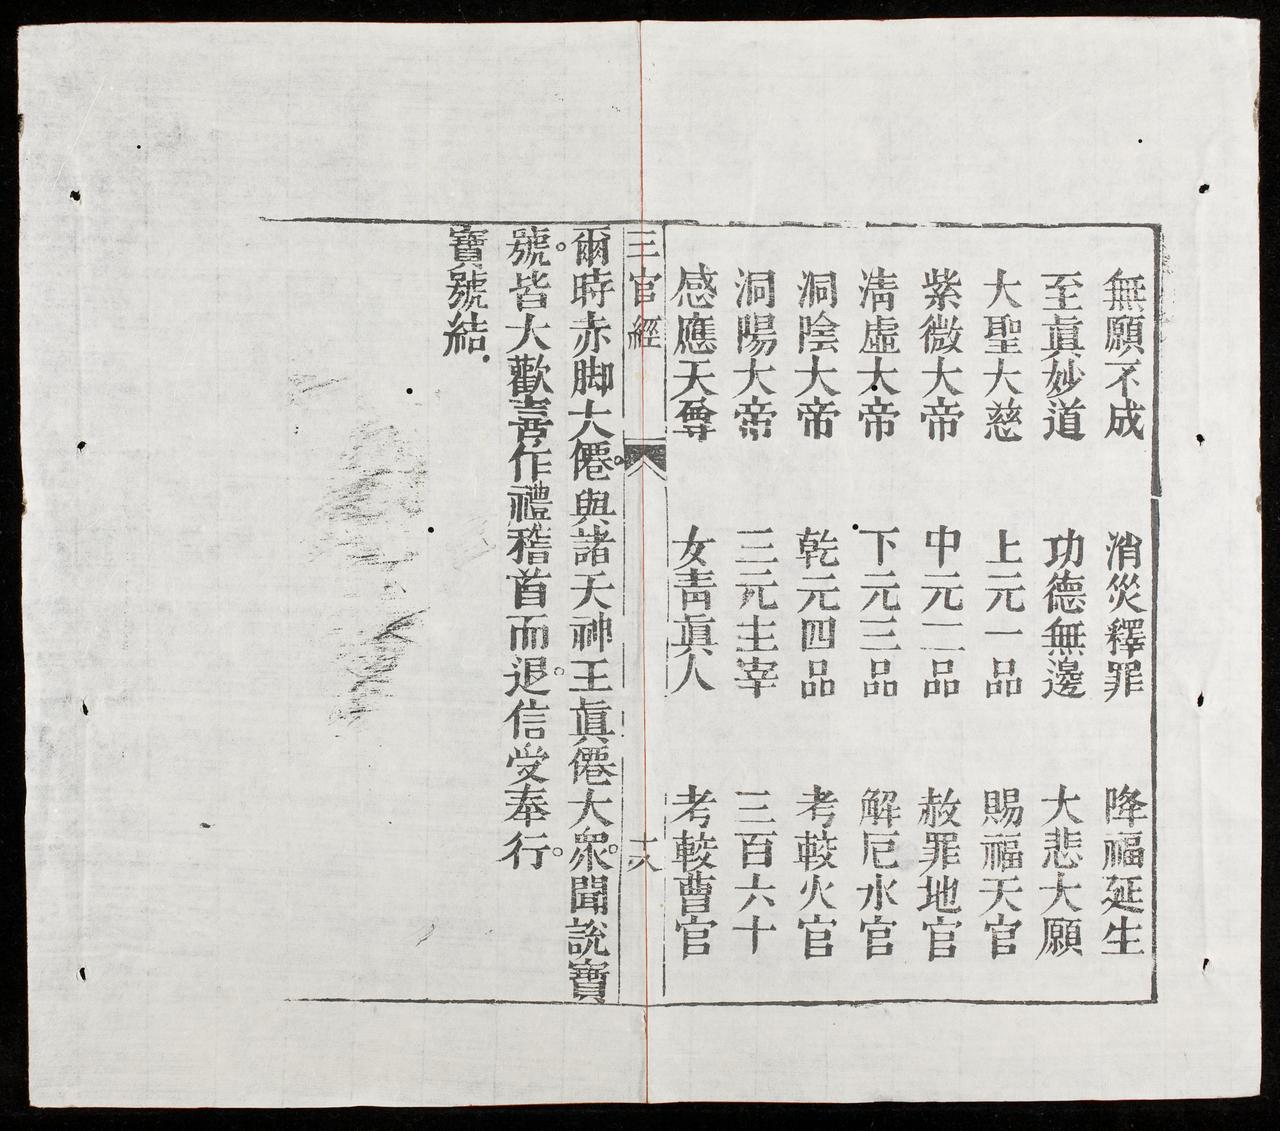 無願不成　消災釋罪　降福延生
至眞妙道　功德無邊　大悲大願
大聖大慈　上元一品　賜福天官
紫微大帝　中元二品　赦罪地官
淸虛大帝　下元三品　解厄水官
洞陰大帝　乾元四品　考較火官
洞陽大帝　三元主宰　三百六十
感應天尊　女青眞人　考較曹官
三官經　十八
爾時赤脚大僊。與諸天神王眞僊大衆。聞說寶
號。皆大歡喜作禮稽首而退。信受奉行。
寶號結.